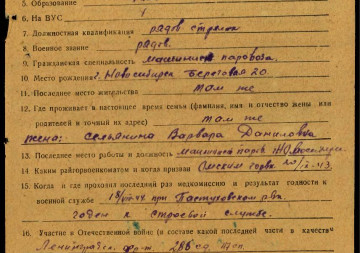 5. Образование
6. На ВУС
7. Должностная квалификация рядов стрелок
8. Военное звание рядов.
9. Гражданская специальность машинист паровоза
10. Место рождения г. Новосибирск Береговая 20.
11. Последнее место жительства там же
12. Где проживает в настоящее время семья (фамилия, имя и отчество жены или
родителей и точный их адрес) там же
жена: Сельянина Варвара Даниловна
13. Последнее место работы и должность машинист паров.
14. Каким райгорвоенкоматом и когда призван Омским горвк
15. Когда и где проходил последний раз медкомиссию и результат годности к
военной службе при Пастуховском рвк.
годен к строевой службе.
16. Участие в Отечественной войне (в составе какой последней части в качестве
Ленинградск. фр-т.